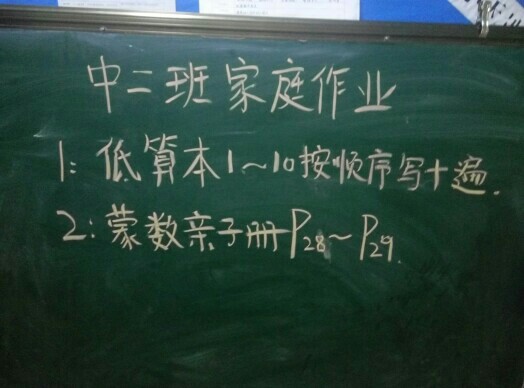 中二班家庭作业
1：低算本1~10按顺序写十遍.
2：蒙数亲子册P28~P29.